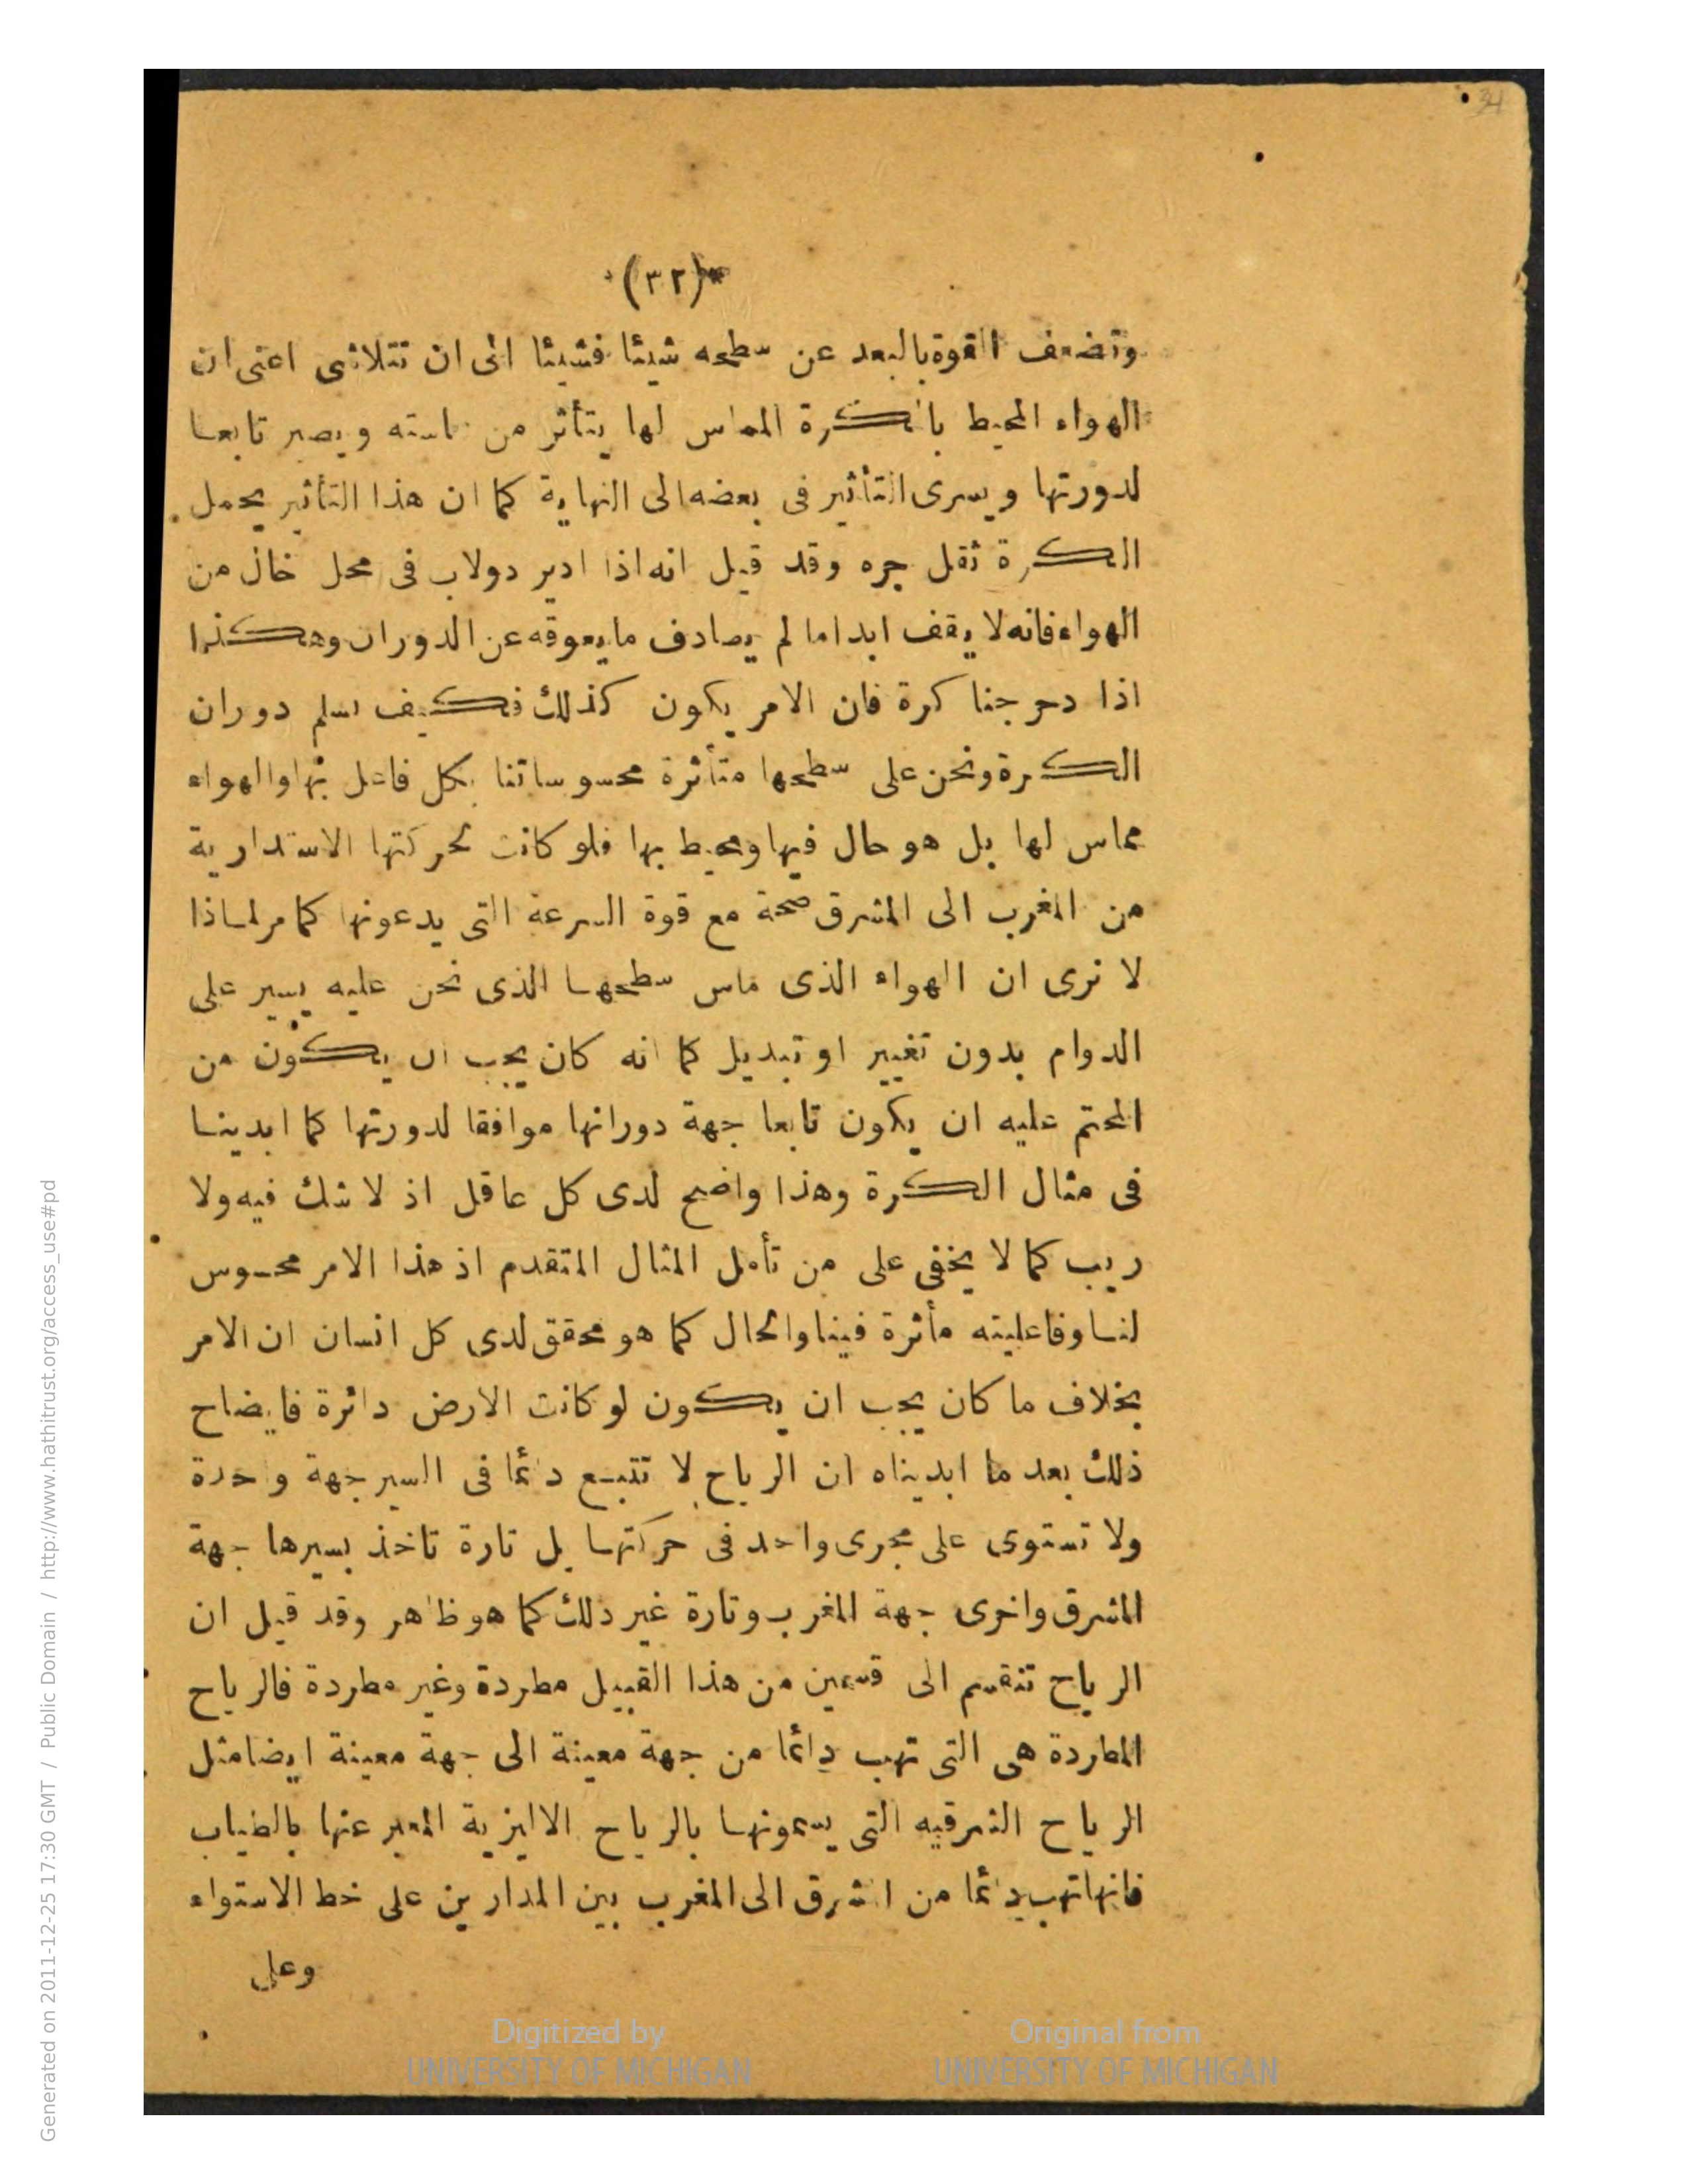 34
*(٣٢)*
وتضعف القوة بالبعد عن سطحه شيئا فشيئا الى ان تتلاشى اعنى ان
الهواء المحيط بالكرة المماس لها يتأثر من مماسته ويصير تابعا
لدورتها ويسرى التأثير فى بعضه الى النهاية كما ان هذا التأثير يحمل
الكرة ثقل جره وقد قيل انه اذا ادير دولاب فى محل خال من
الهواء فانه لا يقف ابدا ما لم يصادف ما يعوقه عن الدوران وهكذا
اذا دحرجنا كرة فان الامر يكون كذلك فكيف نسلم دوران
الكرة ونحن على سطحها متأثرة محسوساتنا بكل فاعل بها والهواء
مماس لها بل هو حال فيها ومحيط بها فلو كانت لحركتها الاستدارية
من المغرب الى المشرق صحة مع قوة السرعة التى يدعونها كما مر لماذا
لا نرى ان الهواء الذى ماس سطحها الذى نحن عليه يسير على
الدوام بدون تغيير او تبديل كما انه كان يجب ان يكون من
المحتم عليه ان يكون تابعا جهة دورانها موافقا لدورتها كما ابدينا
فى مثال الكرة وهذا واضح لدى كل عاقل اذ لا شك فيه ولا
ريب كما لا يخفى على من تأمل المثال المتقدم اذ هذا الامر محسوس
لنا وفاعليته مأثرة فينا والحال كما هو محقق لدى كل انسان ان الامر
بخلاف ما كان يجب ان يكون لو كانت الارض دائرة فايضاح
ذلك بعد ما ابديناه ان الرياح لا تتبع دائما فى السير جهة واحدة
ولا تستوى على مجرى واحد فى حركتها بل تارة تاخذ بسيرها جهة
المشرق واخرى جهة المغرب وتارة غير ذلك كما هو ظاهر وقد قيل ان
الرياح تنقسم الى قسمين من هذا القبيل مطردة وغير مطردة فالرياح
المطردة هى التى تهب دائما من جهة معينة الى جهة معينة ايضا مثل
الرياح الشرقيه التى يسمونها بالرياح الاليزية المعبر عنها بالطياب
فانها تهب دائما من الشرق الى المغرب بين المدارين على خط الاستواء
وعلى
Digitized by
UNIVERSITY OF MICHIGAN
Original from
UNIVERSITY OF MICHIGAN
Generated on 2011-12-25 17:30 GMT / Public Domain / http://www.hathitrust.org/access_use#pd